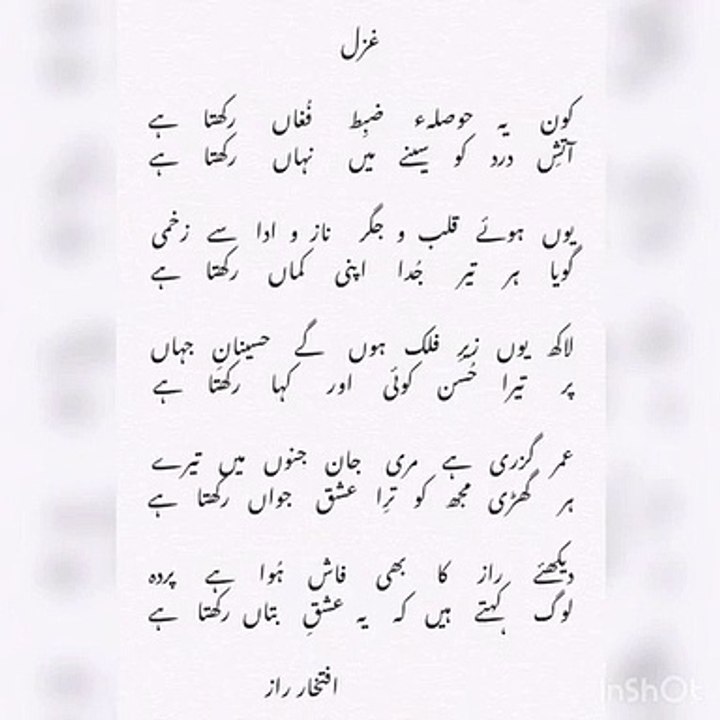 غزل
کون یہ حوصلہء ضبِط فُغاں رکھتا ہے
آتِش درد کو سینے میں نہاں رکھتا ہے
یوں ہوئے قلب و جگر ناز و ادا سے زخمی
گویا ہر تیر جُدا اپنی کماں رکھتا ہے
لاکھ یوں زیرِ فلک ہوں گے حسینانِ جہاں
پر تیرا حُسن کوئی اور کہا رکھتا ہے
عمر گزری ہے مری جان جنوں میں تیرے
ہر گھڑی مجھ کو تِرا عشق جواں رکھتا ہے
دیکھئے راز کا بھی فاش ہُوا ہے پردہ
لوگ کہتے ہیں کہ یہ عشقِ بتاں رکھتا ہے
افتخار راز
InShOt